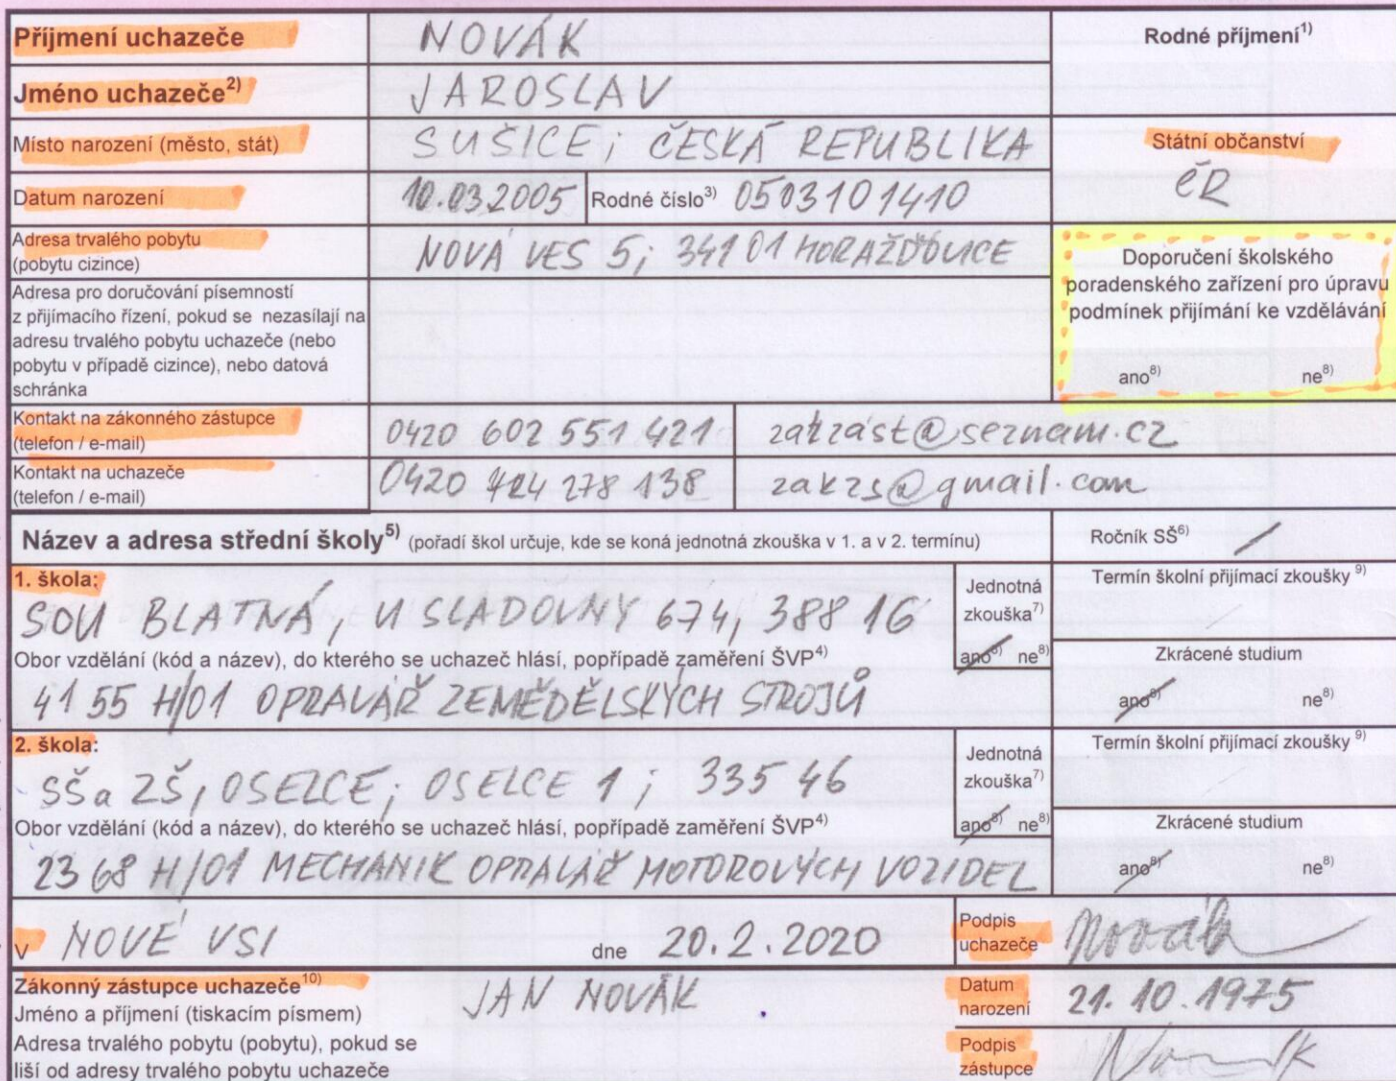 Příjmení uchazeče NOVÁK Rodné příjmení1)
Jméno uchazeče2) JAROSLAV
Místo narození (město, stát) SUŠICE; ČESKÁ REPUBLIKA Státní občanství
ČR
Datum narození 10.03.2005 Rodné číslo3) 0503101410
Adresa trvalého pobytu
(pobytu cizince)
NOVÁ VES 5; 34101 HORAŽĎOVICE
Doporučení školského
poradenského zařízení pro úpravu
podmínek přijímání ke vzdělávání
ano8) ne8)
Adresa pro doručování písemností
z přijímacího řízení, pokud se nezasílají na
adresu trvalého pobytu uchazeče (nebo
pobytu v případě cizince), nebo datová
schránka
Kontakt na zákonného zástupce
(telefon / e-mail)
0420 602 551 421 zakzast@seznam.cz
Kontakt na uchazeče
(telefon / e-mail)
0420 724 278 138 zakzs@gmail.com
Název a adresa střední školy5) (pořadí škol určuje, kde se koná jednotná zkouška v 1. a v 2. termínu) Ročník SŠ6) /
1. škola:
SOU BLATNÁ, U SLADOVNY 674, 388 16
Jednotná
zkouška7)
ano8) ne8)
Termín školní přijímací zkoušky 9)
Obor vzdělání (kód a název), do kterého se uchazeč hlásí, popřípadě zaměření ŠVP4)
Zkrácené studium
ano8) ne8)
41 55 H/01 OPRAVÁŘ ZEMĚDĚLSKÝCH STROJŮ
2. škola:
SŠ a ZŠ, OSELCE; OSELCE 1; 335 46
Jednotná
zkouška7)
ano8) ne8)
Termín školní přijímací zkoušky 9)
Obor vzdělání (kód a název), do kterého se uchazeč hlásí, popřípadě zaměření ŠVP4)
Zkrácené studium
ano8) ne8)
23 68 H/01 MECHANIK OPRAVÁŘ MOTOROVÝCH VOZIDEL
v NOVÉ VSI dne 20.2.2020
Podpis
uchazeče
Novák
Zákonný zástupce uchazeče10)
Jméno a příjmení (tiskacím písmem)
JAN NOVÁK
Datum
narození
21.10.1975
Adresa trvalého pobytu (pobytu), pokud se
liší od adresy trvalého pobytu uchazeče
Podpis
zástupce